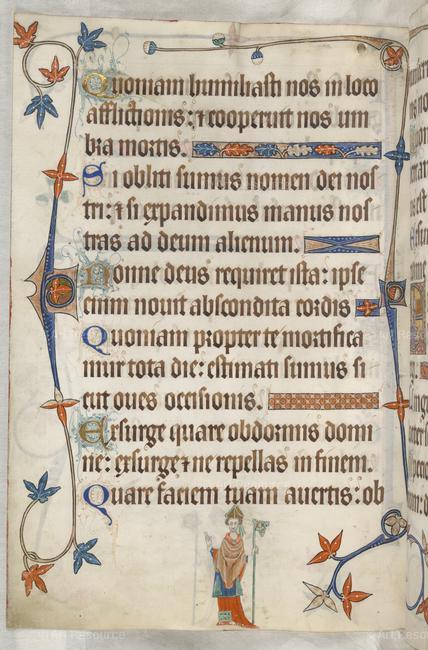 Quoniam humiliasti nos in loco
afflictionis: ⁊ cooperuit nos um
bra mortis.
Si obliti sumus nomen dei nos
tri: ⁊ si expandimus manus nos
tras ad deum alienum.
Nonne deus requiret ista: ipse
enim nouit abscondita cordis
Quoniam propter te mortifica
mur tota die: estimati sumus si
cut oues occisionis.
Exsurge quare obdormis domi
ne: exsurge ⁊ ne repellas in finem.
Quare faciem tuam auertis: ob
Art Resource